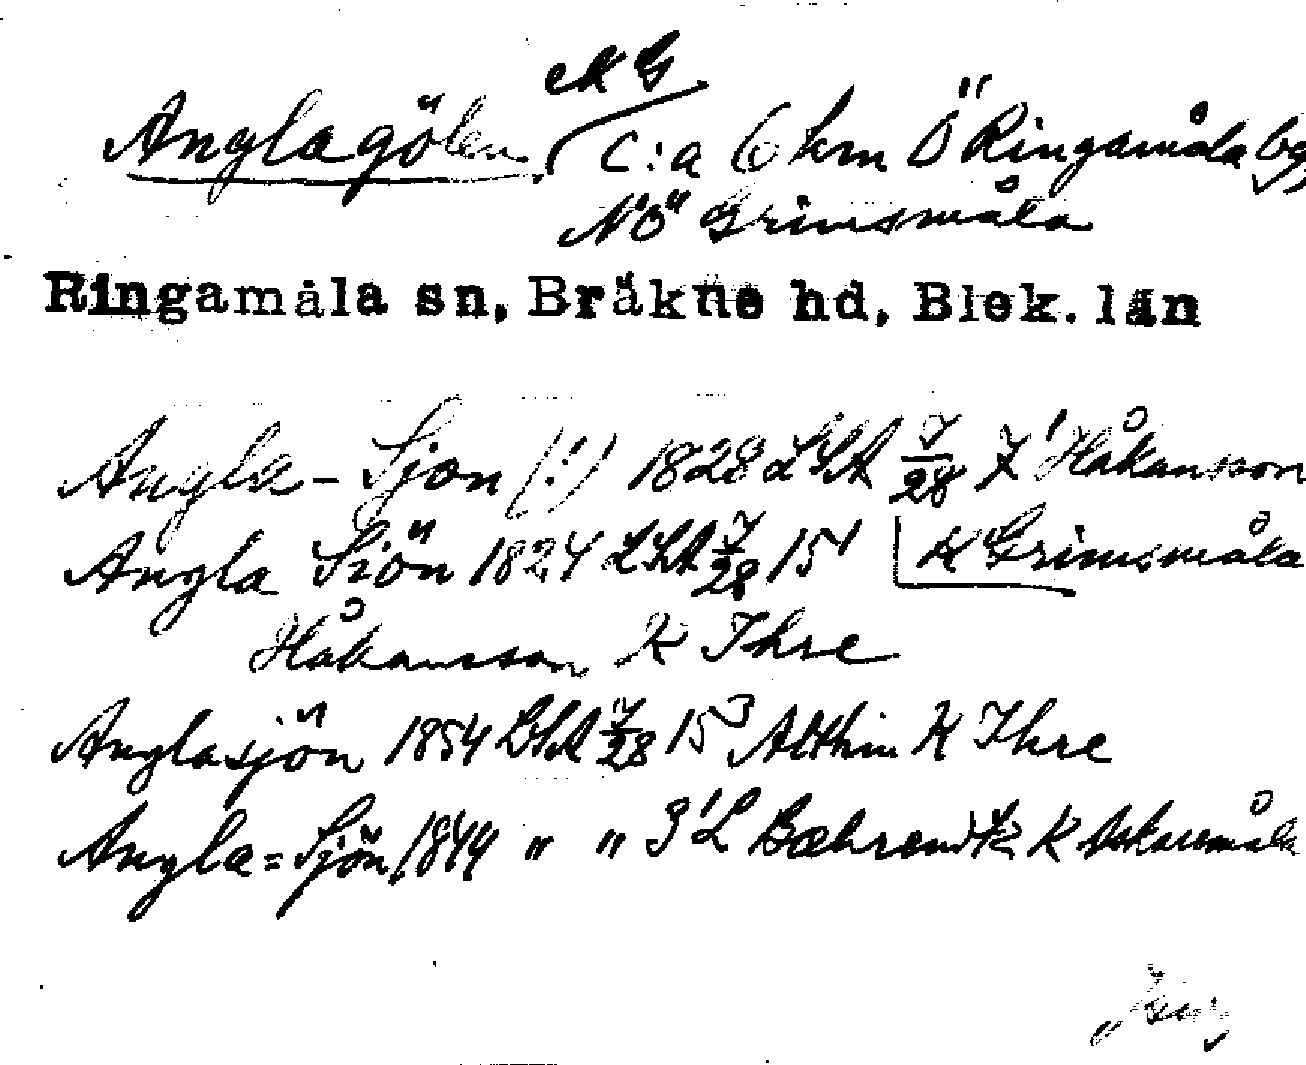 Anglagölen. c:a 6 km Ö Ringamåla by,
NÖ Grimsmåla
Ringamåla sn, Bräkne hd, Blek. län
Angla-Sjön (!) 1828 LSA 7/28 7' Håkansson
Angla Siön 1824 LSA 7/28 15' K Grimsmåla
Håkansson K Ihre
Anglasjön 1854 LSA 7/28 15³ K Ihre
Angla=Sjön 1849 " " K